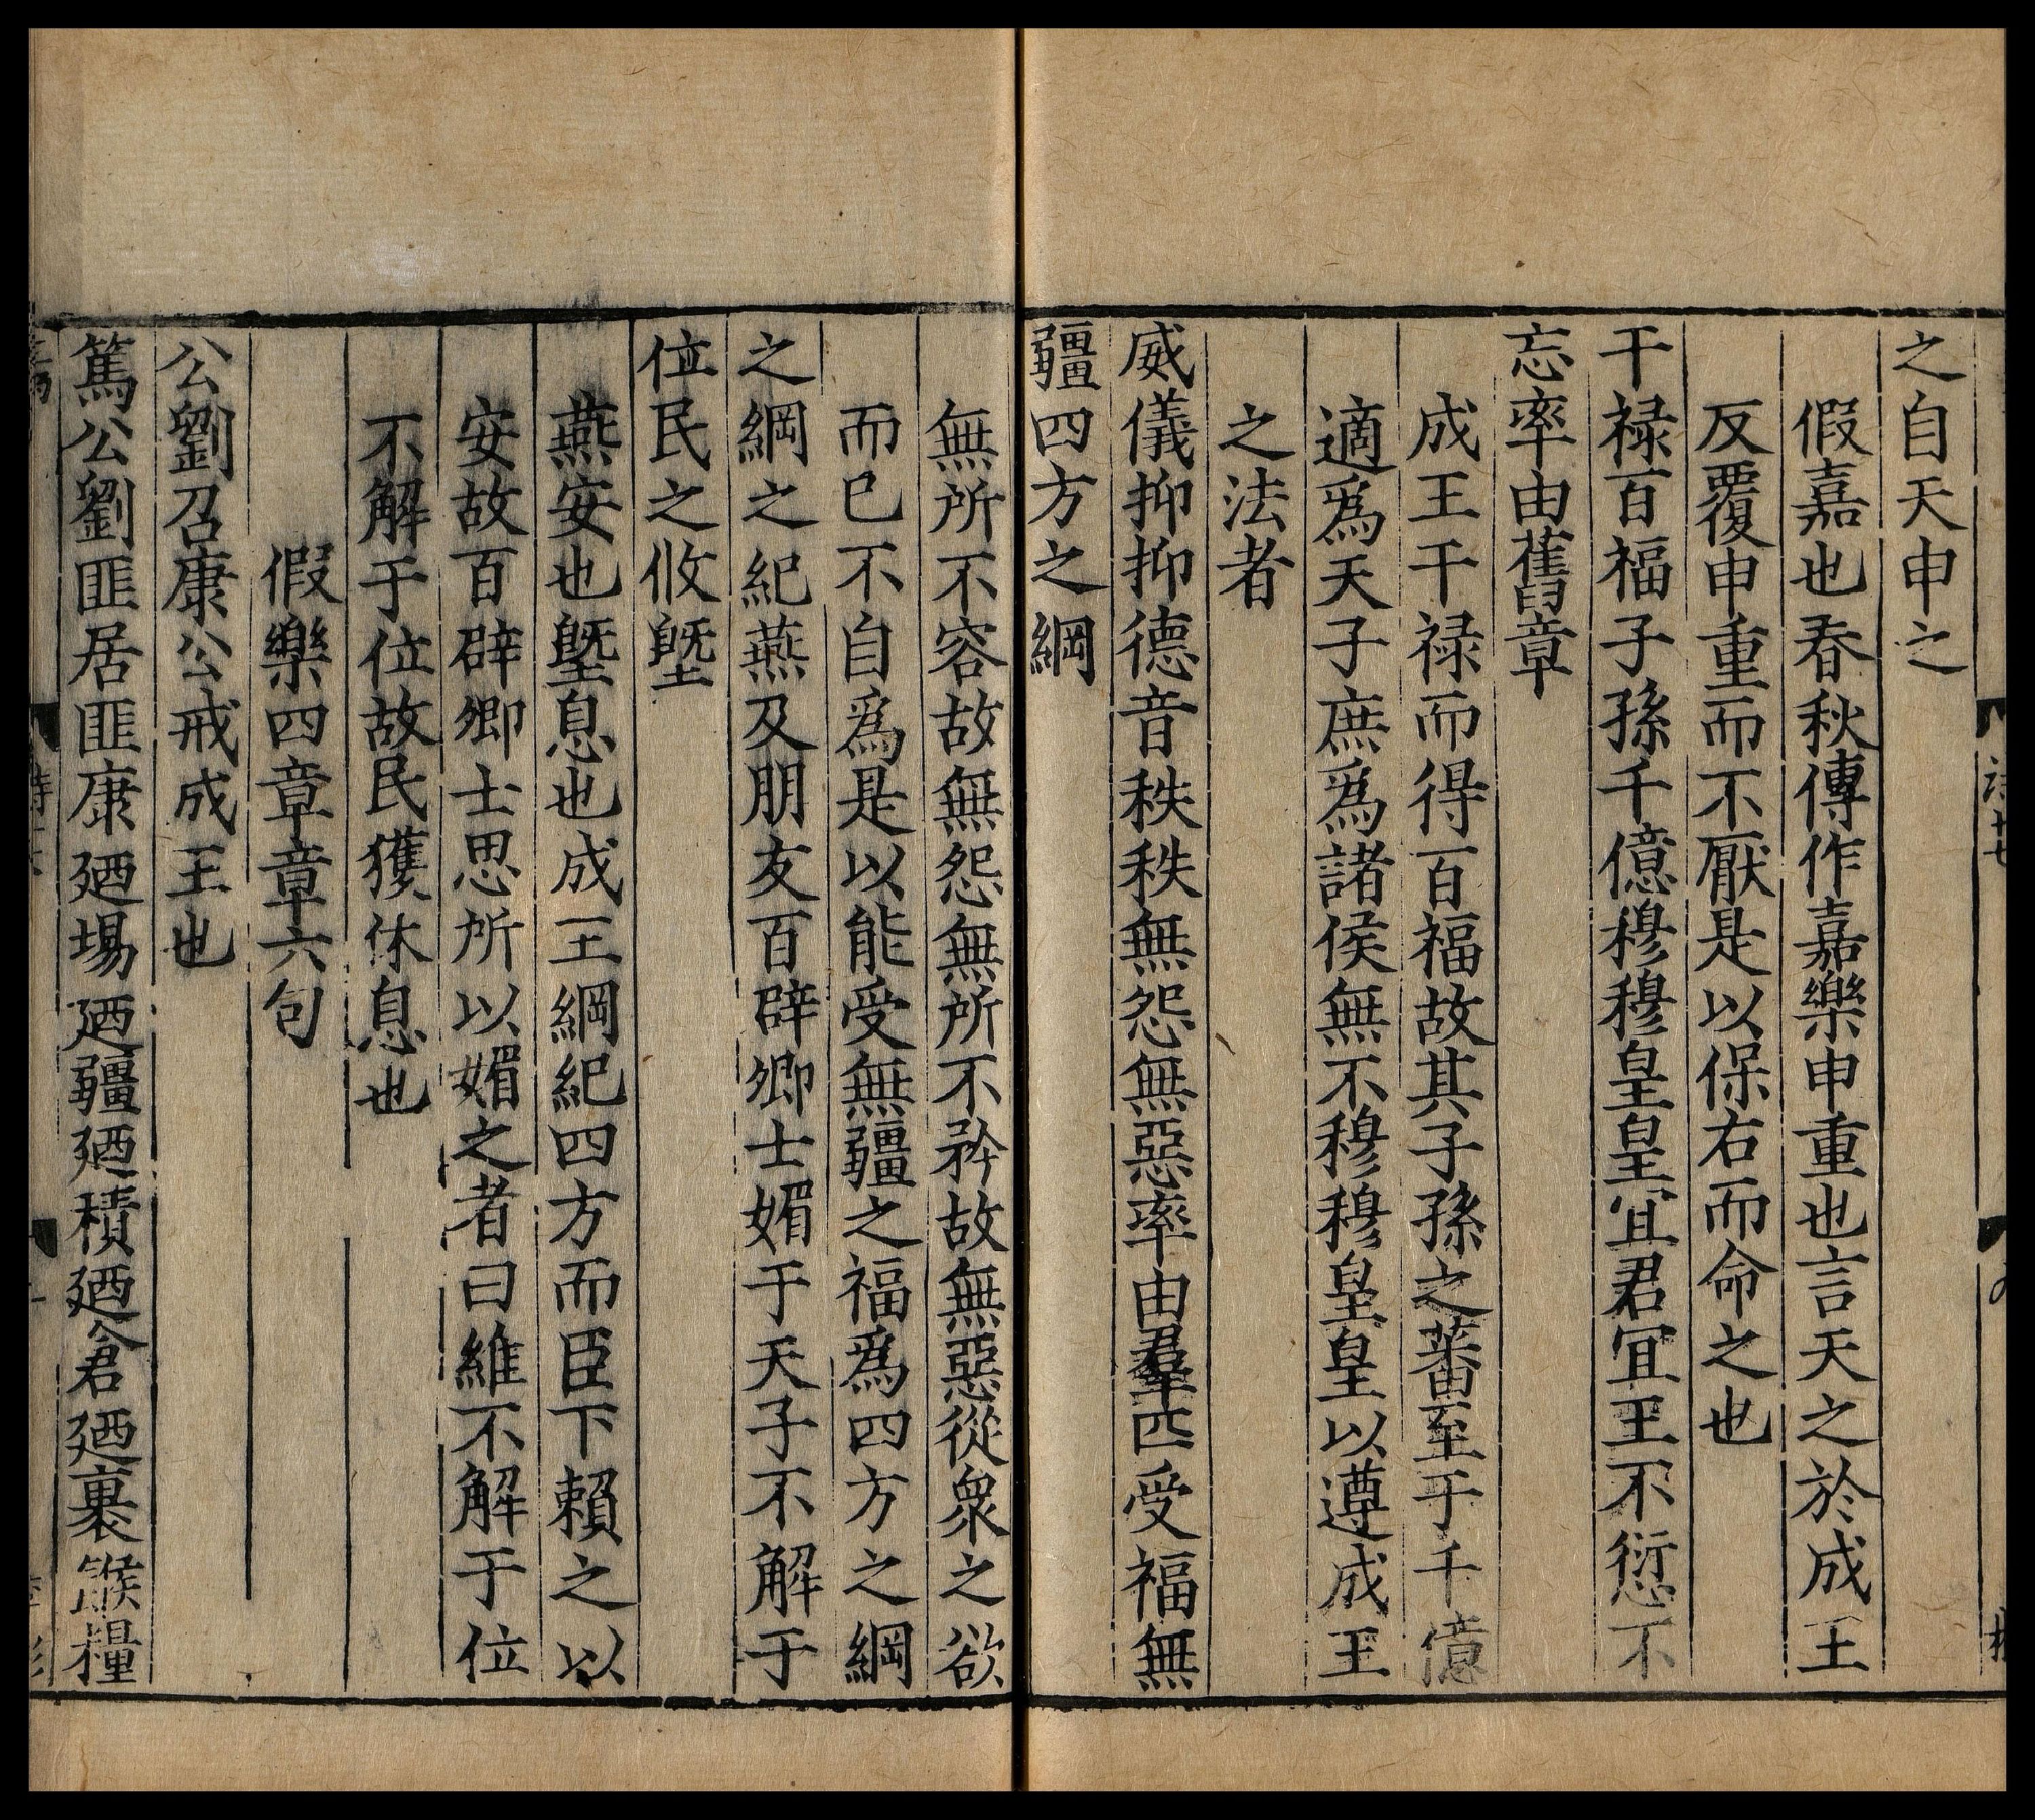 之自天申之
假嘉也春秋傳作嘉樂申重也言天之於成王
反覆申重而不厭是以保右而命之也
干禄百福子孫千億穆穆皇皇宜君宜王不愆不
忘率由舊章
成王干禄而得百福故其子孫之蕃至于千億
適爲天子庶爲諸侯無不穆穆皇皇以遵成王
之法者
威儀抑抑德音秩秩無怨無惡率由羣匹受福無
疆四方之綱
無所不容故無怨無所不矜故無惡從衆之欲
而已不自爲是以能受無疆之福爲四方之綱
之綱之紀燕及朋友百辟卿士媚于天子不解于
位民之攸塈
燕安也塈息也成王綱紀四方而臣下賴之以
安故百辟卿士思所以媚之者曰維不解于位
不解于位故民獲休息也
假樂四章章六句
公劉召康公戒成王也
篤公劉匪居匪康廼場廼疆廼積廼倉廼裹餱糧